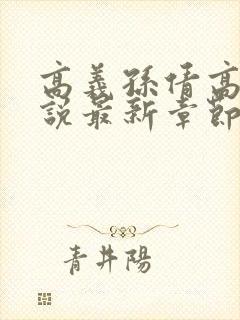 高義孫倩高
說最新章節
青井陽